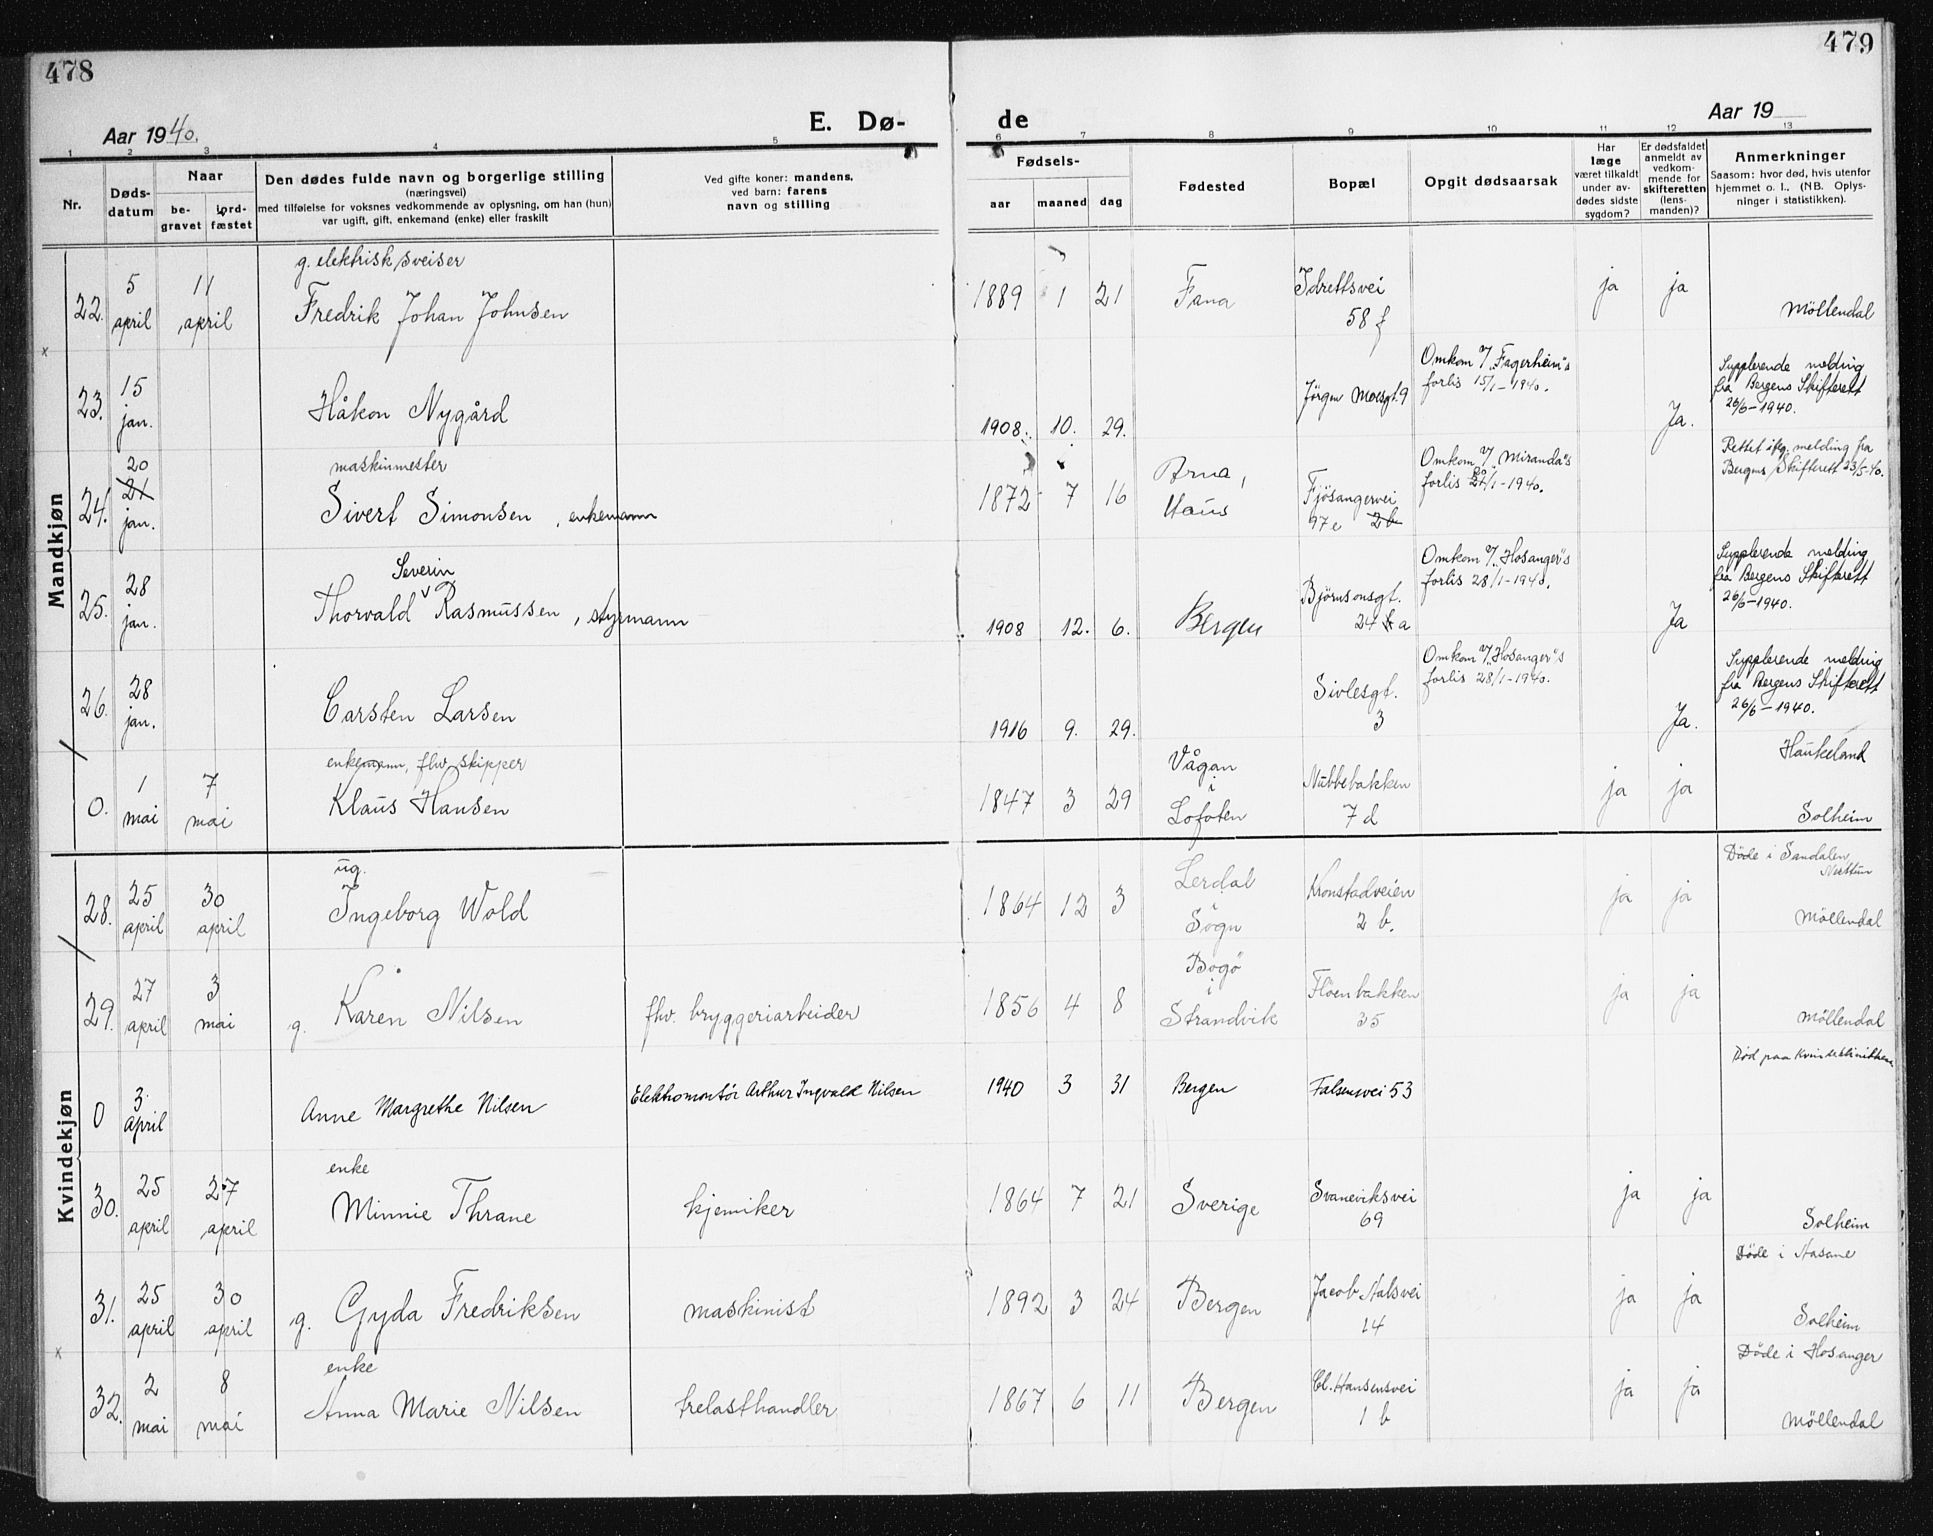 478
479
Aar 1940.
E. Dø-
de
Aar 19
1 2 3 4 5 6 7 8 9 10 11 12 13
Nr.
Døds-
datum
Naar
be-
gravet
jord-
fæstet
Den dødes fulde navn og borgerlige stilling
(næringsvei)
med tilføielse for voksnes vedkommende av oplysning, om han (hun)
var ugift, gift, enkemand (enke) eller fraskilt
Ved gifte koner: mandens,
ved barn: farens
navn og stilling
Fødsels-
aar maaned dag
Fødested
Bopæl
Opgit dødsaarsak
Har
læge
været tilkaldt
under av-
dødes sidste
sygdom?
Er dødsfaldet
anmeldt av
vedkom-
mende for
skifteretten
(lens-
manden)?
Anmerkninger
Saasom: hvor død, hvis utenfor
hjemmet o. l., (NB. Oplys-
ninger i statistikken).
Mandkjøn
g. elektrisk sveiser
22. 5 april 11 april Fredrik Johan Johnsen 1889 1 21 Fana Idrettsvei 58 f ja ja Möllendal
x
23. 15 jan. Håkon Nygård 1908. 10. 29. Jörgen Moesgt. 9
Omkom v/ „Fagerheim"s
forlis 15/1-1940.
Ja.
Supplerende melding
fra Bergens Skifterett
26/6-1940.
maskinmester
24. 20 21 jan. Sivert Simonsen, enkemann 1872 7 16 Arna, Haus Fjösangervei 97 e 2b
Omkom v/ „Miranda"s
forlis 20/1-1940.
Rettet ifg. melding fra
Bergens Skifterett 23/5-40.
Severin
25. 28 jan. Thorvald v Rasmussen, styrmann 1908 12. 6. Bergen Björnsonsgt. 24 a
Omkom v/ „Hosanger"s
forlis 28/1-1940.
Ja
Supplerende melding
fra Bergens Skifterett
26/6-1940.
26. 28 jan. Carsten Larsen 1916 9. 29. Sivlesgt. 3
Omkom v/ „Hosanger"s
forlis 28/1-1940.
Ja.
Supplerende melding
fra Bergens Skifterett
26/6-1940.
enkemann, fhv. skipper
0. 1 mai 7 mai Klaus Hansen 1847 3 29 Vågan i Lofoten Nubbebakken 7 d ja ja Haukeland
Solheim
Kvindekjøn
ug.
28. 25 april 30 april Ingeborg Wold 1864 12 3 Lerdal i Sogn Kronstadveien 2 b. ja ja Döde i Sandalen
Nesttun
Möllendal
29. 27 april 3 mai g. Karen Nilsen fhv. bryggeriarbeider 1856 4 8 Bogö i Strandvik Flöenbakken 35 ja ja Möllendal
0 3. April Anne Margrethe Nilsen Elektromontör Arthur Ingvald Nilsen 1940 3 31 Bergen Falsensvei 53 Död paa Kvindeklinikken
enke
30. 25 april 27 april Minnie Thrane kjemiker 1864 7 21 Sverige Svaneviksvei 69 ja ja Solheim
31. 25 april 30 april g. Gyda Fredriksen maskinist 1892 3 24 Bergen Jacob Aalsvei 14 ja ja Döde i Aasane
Solheim
x
enke
32. 2 mai 8 mai Anna Marie Nilsen trelasthandler 1867 6 11 Bergen Cl. Hansensvei 1 b ja ja Döde i Hosanger
Möllendal